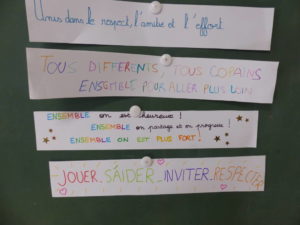 Unis dans le respect, l'amitié et l'effort
TOUS DIFFÉRENTS, TOUS COPAINS
ENSEMBLE POUR ALLER PLUS LOIN
ENSEMBLE on est heureux !
ENSEMBLE on partage et on progresse !
ENSEMBLE ON EST PLUS FORT !
JOUER_SÁIDER_INVITER_RESPECTER